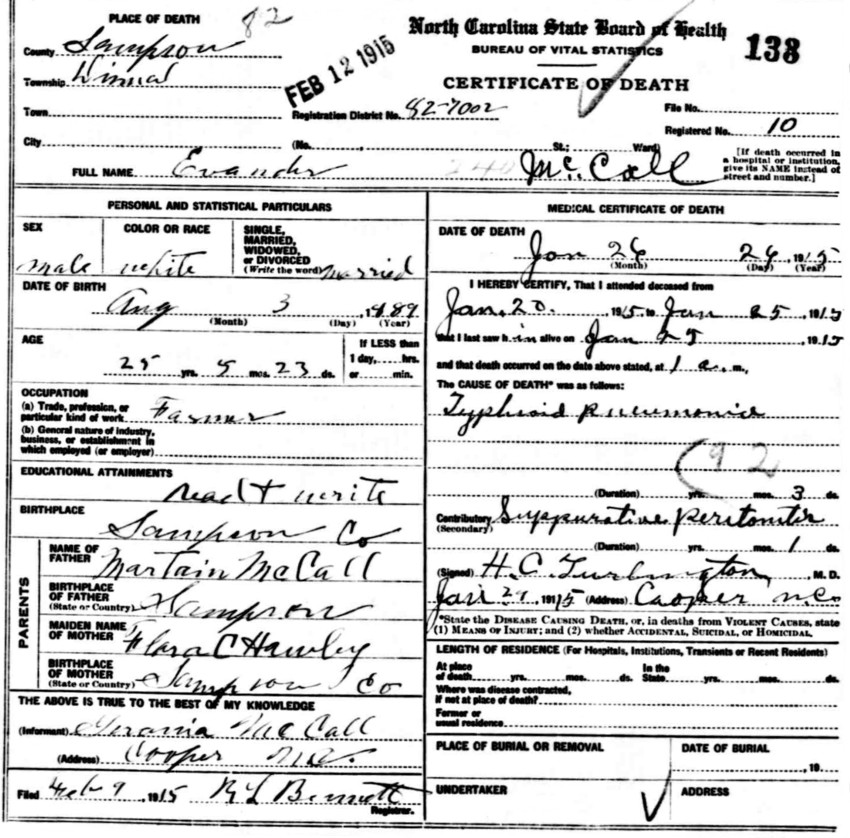 PLACE OF DEATH
82
County Sampson
Township Dismal
Town
City
FEB 12 1915
North Carolina State Board of Health
BUREAU OF VITAL STATISTICS
138
CERTIFICATE OF DEATH
Registration District No. 82-7002
File No.
Registered No. 10
(No. , St.; Ward)
[If death occurred in a hospital or institution, give its NAME instead of street and number.]
FULL NAME Evander McCall
240
PERSONAL AND STATISTICAL PARTICULARS
SEX
male
COLOR OR RACE
white
SINGLE,
MARRIED,
WIDOWED,
or DIVORCED
(Write the word) married
DATE OF BIRTH
Aug 3, 1889
(Month) (Day) (Year)
AGE
25 yrs. 5 mos. 23 ds.
If LESS than
1 day, hrs.
or min.
OCCUPATION
(a) Trade, profession, or
particular kind of work Farmer
(b) General nature of industry,
business, or establishment in
which employed (or employer)
EDUCATIONAL ATTAINMENTS
read + write
BIRTHPLACE
Sampson Co
PARENTS
NAME OF
FATHER
Martain McCall
BIRTHPLACE
OF FATHER
(State or Country) Sampson
MAIDEN NAME
OF MOTHER
Flora C Hawley
BIRTHPLACE
OF MOTHER
(State or Country) Sampson Co
THE ABOVE IS TRUE TO THE BEST OF MY KNOWLEDGE
(Informant) McCall
(Address) Cooper N.C.
Filed Feb 9, 1915 R L Bennett
Registrar.
MEDICAL CERTIFICATE OF DEATH
DATE OF DEATH
Jan 26 26, 1915
(Month) (Day) (Year)
I HEREBY CERTIFY, That I attended deceased from
Jan. 20. 1915 to Jan 25 1915
that I last saw him alive on Jan 25 1915
and that death occurred on the date above stated, at 1 a. m.,
The CAUSE OF DEATH* was as follows:
Typhoid pneumonia
(92
(Duration) yrs. mos. 3 ds.
Contributory Suppurative peritonitis
(Secondary)
(Duration) yrs. mos. 1 ds.
(Signed) H. C. Turlington, M. D.
Jan 27 1915 (Address) Cooper N.C.
*State the DISEASE CAUSING DEATH, or, in deaths from VIOLENT CAUSES, state
(1) MEANS OF INJURY; and (2) whether ACCIDENTAL, SUICIDAL, or HOMICIDAL.
LENGTH OF RESIDENCE (For Hospitals, Institutions, Transients or Recent Residents)
At place
of death yrs. mos. ds.
In the
State yrs. mos. ds.
Where was disease contracted,
if not at place of death?
Former or
usual residence
PLACE OF BURIAL OR REMOVAL
DATE OF BURIAL
, 19
UNDERTAKER
ADDRESS